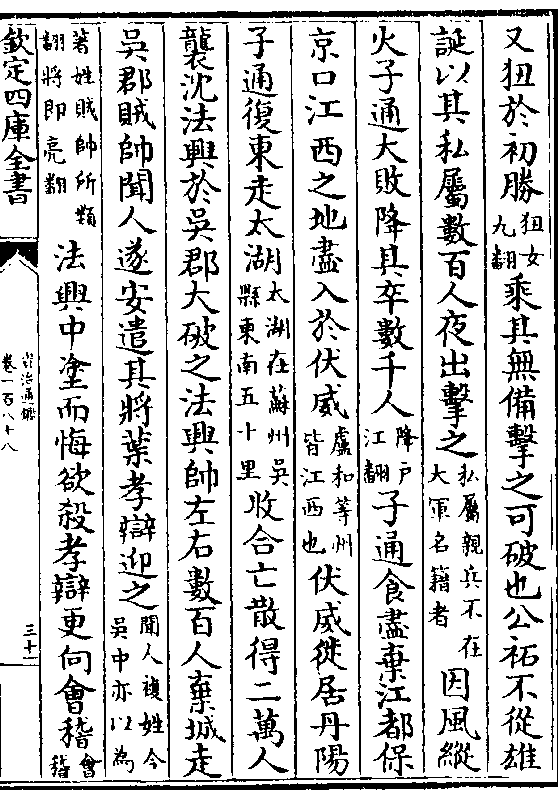 又狃於初勝狃女九翻乘其無備擊之可破也公祏不從雄
誕以其私屬數百人夜出擊之私屬親兵不在大軍名籍者因風縱
火子通大敗降其卒數千人降戶江翻子通食盡棄江都保
京口江西之地盡入於伏威廬和等州皆江西也伏威徙居丹陽
子通復東走太湖太湖在蘇州吳縣東南五十里收合亡散得二萬人
襲沈法興於吳郡大破之法興帥左右數百人棄城走
吳郡賊帥聞人遂安遣其將葉孝辯迎之聞人複姓今吳中亦以為
著姓賊帥所類翻將即亮翻法興中塗而悔欲殺孝辯更向會稽會稽
欽定四庫全書
資治通鑑
卷一百八十八
三十一